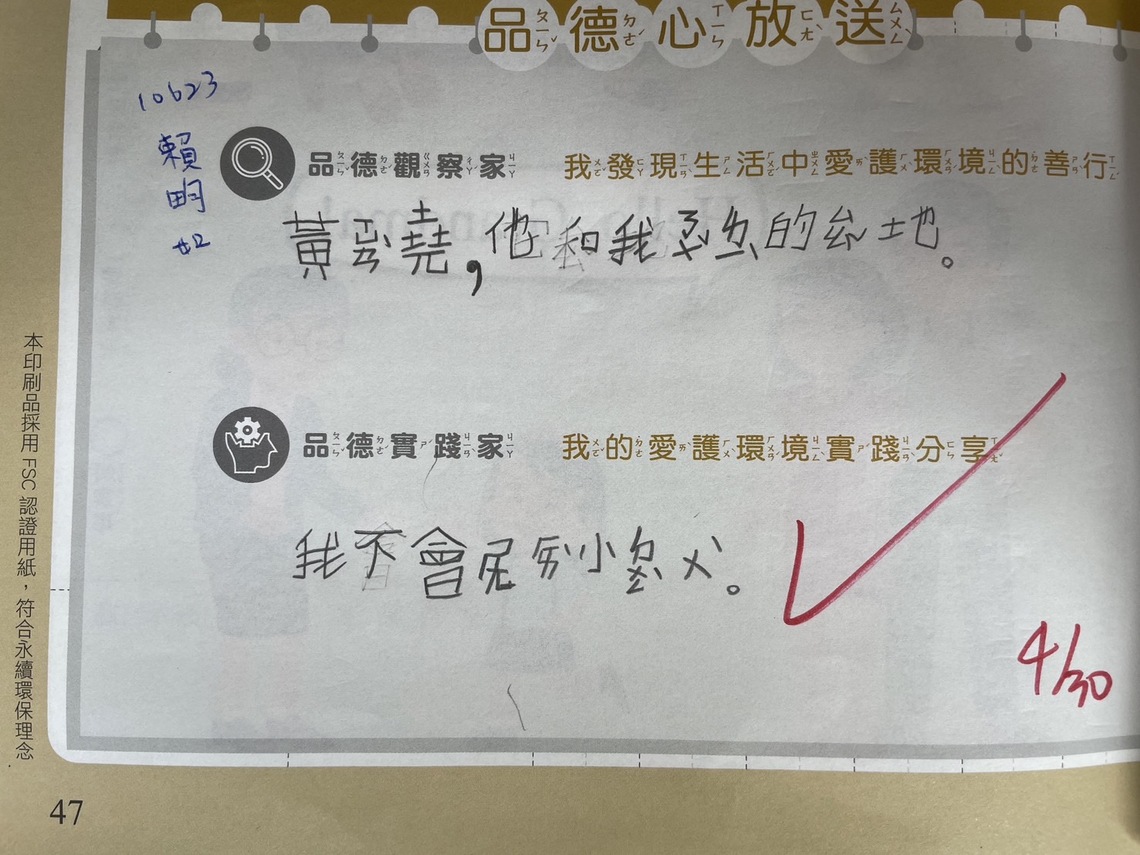 品德心放送
10623
賴
品德觀察家 我發現生活中愛護環境的善行
黃堯，他和我的台土地。
品德實踐家 我的愛護環境實踐分享
我不會尾列小ㄨˇ。
4/30
本印刷品採用 FSC 認證用紙，符合永續環保理念
47